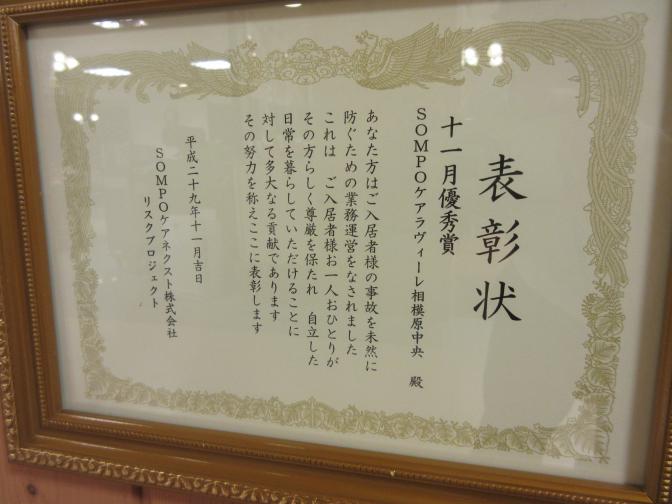 表彰状
十一月優秀賞
SOMPOケアラヴィーレ相模原中央　殿
あなた方はご入居者様の事故を未然に
防ぐための業務運営をなされました
これは　ご入居者様お一人おひとりが
その方らしく尊厳を保たれ　自立した
日常を暮らしていただけることに
対して多大なる貢献であります
その努力を称えここに表彰します
平成二十九年十一月吉日
SOMPOケアネクスト株式会社
リスクプロジェクト